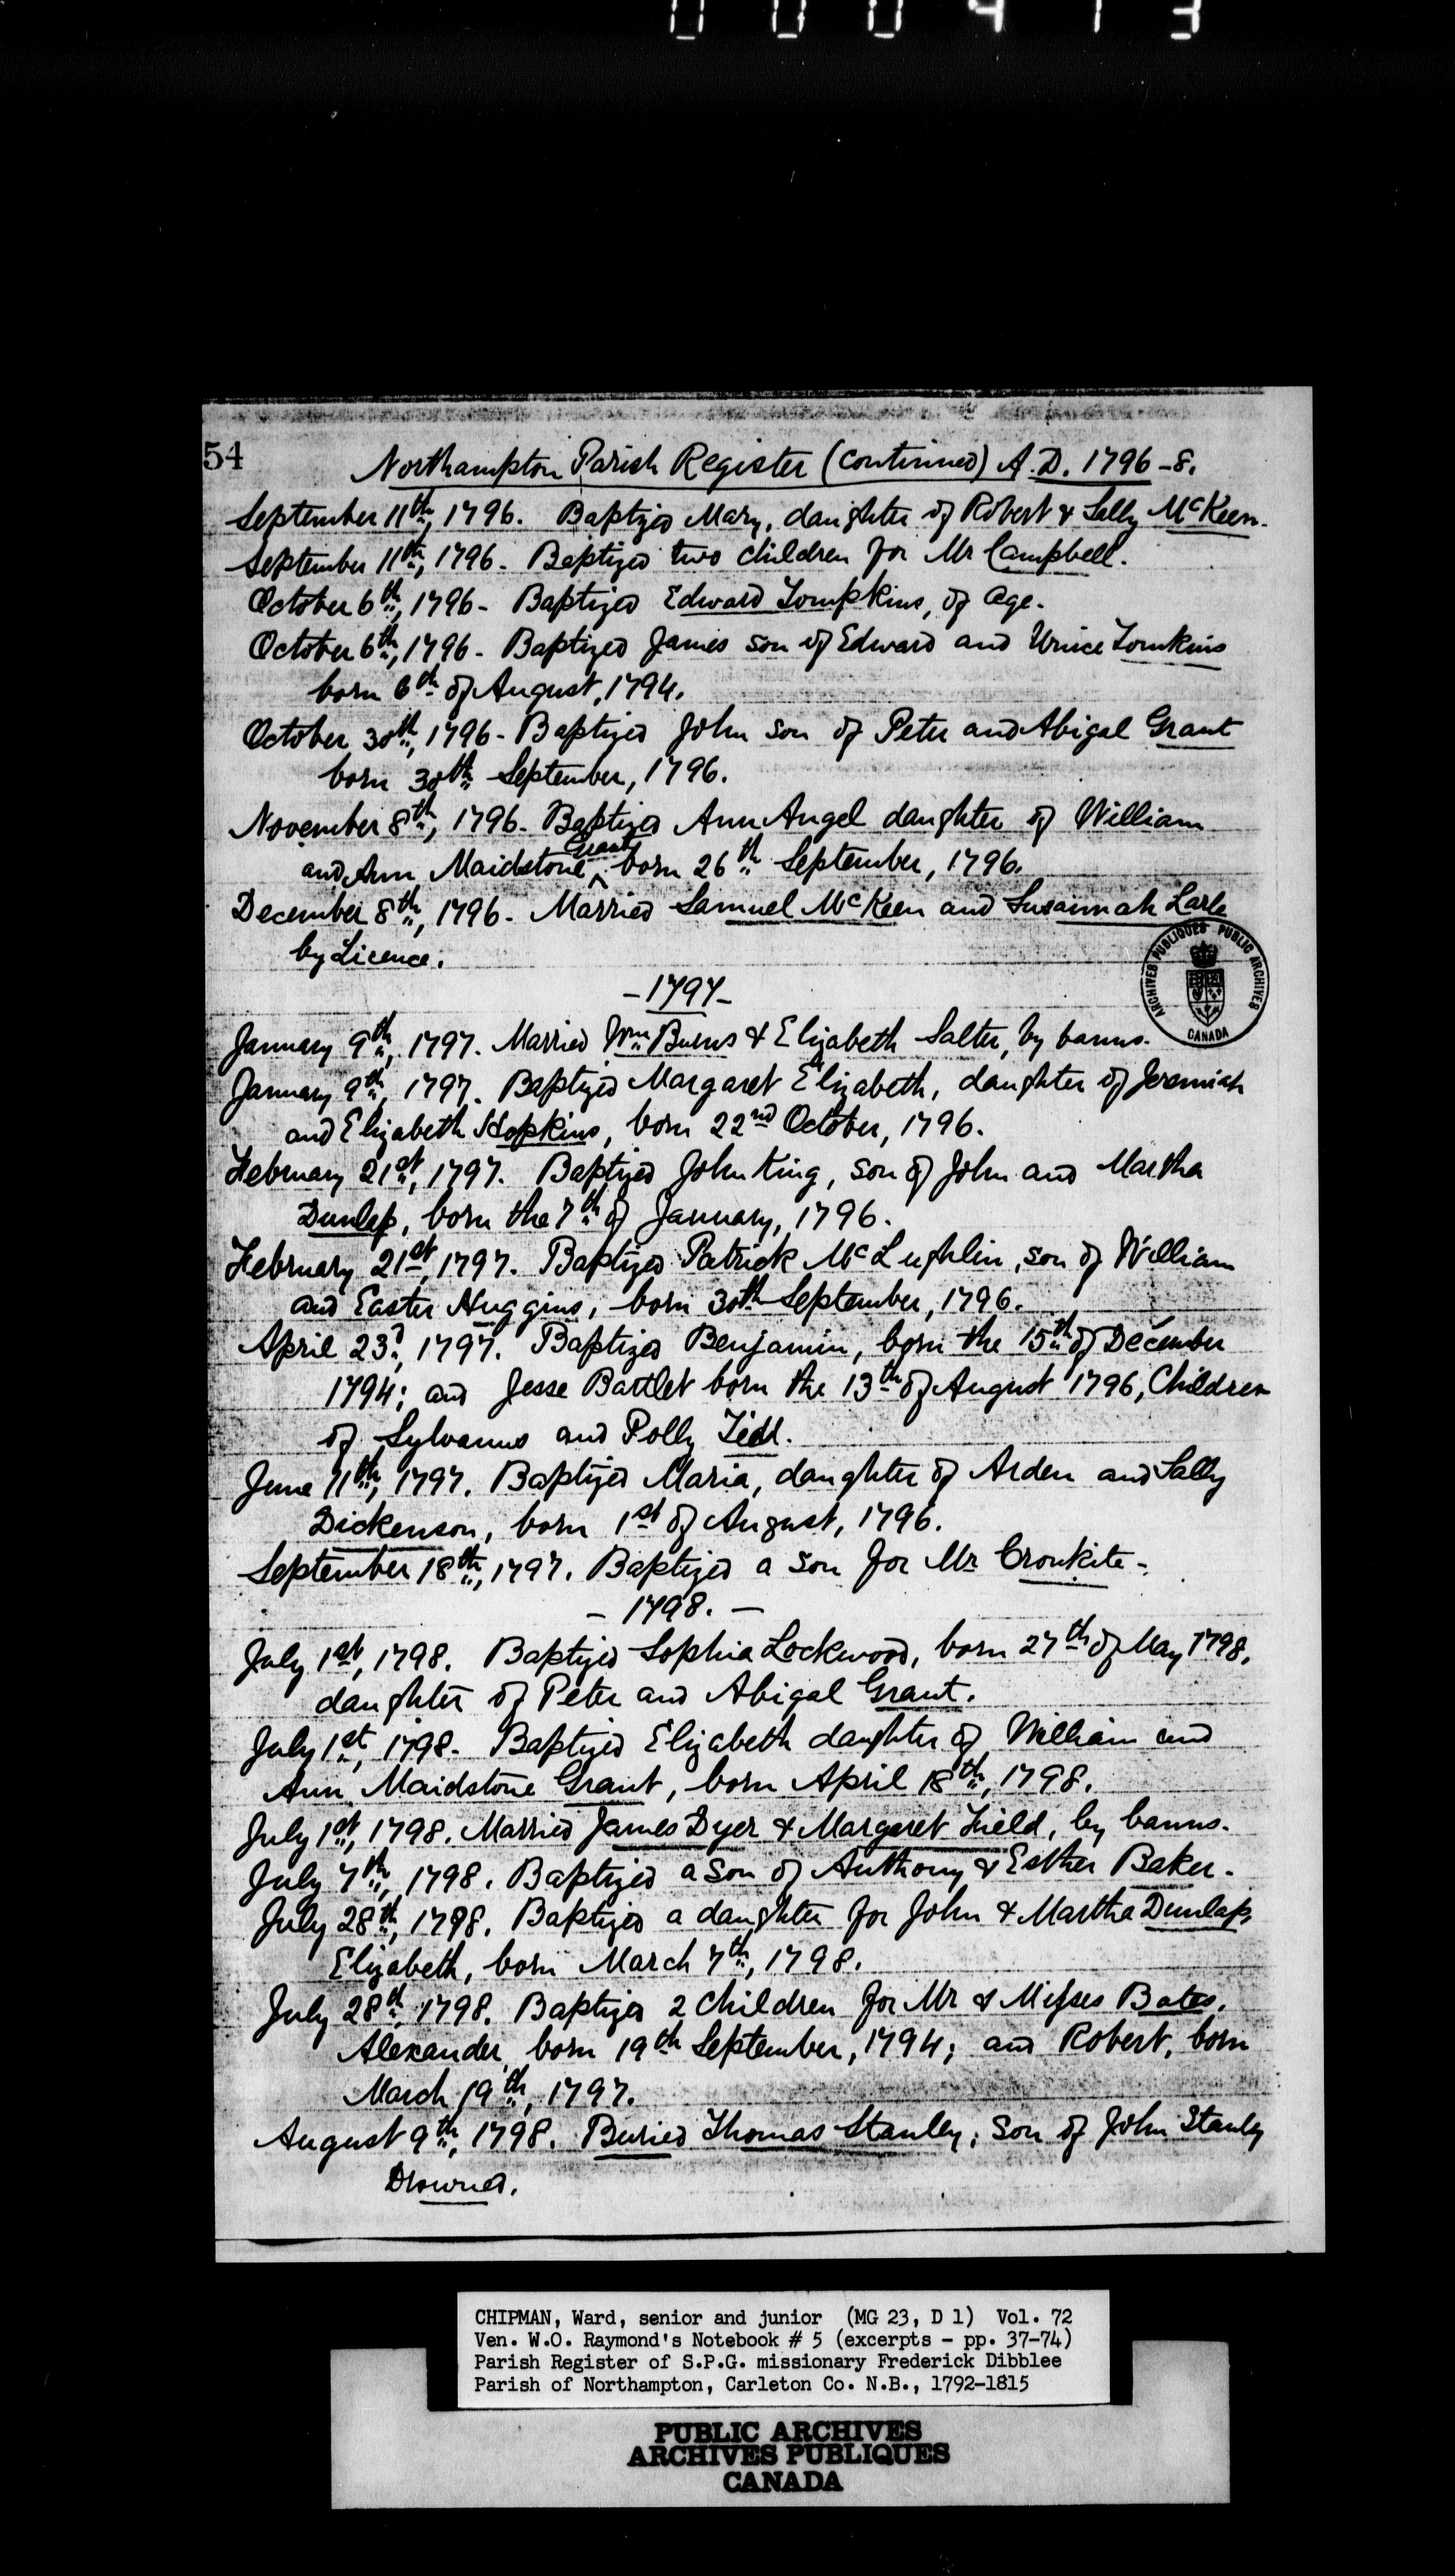 000413
54
Northampton Parish Register (continued) A.D. 1796-8.
September 11th, 1796. Baptized Mary, daughter of Robert & Sally McKeen.
September 11th, 1796 - Baptized two children for Mr Campbell.
October 6th, 1796 - Baptized Edward Tompkins, of age.
October 6th, 1796 - Baptized James son of Edward and Unice Tomkins
born 6th of August, 1794.
October 30th, 1796 - Baptized John son of Peter and Abigal Grant
born 30th September, 1796.
November 8th, 1796 - Baptized Ann Angel daughter of William
and Ann Maidstone ^Grant born 26th September, 1796.
December 8th, 1796 - Married Samuel McKeen and Susannah Larle
by Licence.
ARCHIVES PUBLIQUES PUBLIC ARCHIVES
CANADA
- 1797 -
January 9th, 1797. Married Wm Burns & Elizabeth Salter, by banns.
January 9th, 1797. Baptized Margaret Elizabeth, daughter of Jeremiah
and Elizabeth Hopkins, born 22nd October, 1796.
February 21st, 1797. Baptized John King, son of John and Martha
Dunlap, born the 7th of January, 1796.
February 21st, 1797. Baptized Patrick McLughlin, son of William
and Easter Huggins, born 30th September, 1796.
April 23d, 1797. Baptized Benjamin, born the 15th of December
1794; and Jesse Bartlet born the 13th of August 1796, Children
of Sylvanus and Polly
June 11th, 1797. Baptized Maria, daughter of Arden and Sally
Dickenson, born 1st of August, 1796.
September 18th, 1797. Baptized a son for Mr Cronkite -
- 1798. -
July 1st, 1798. Baptized Sophia Lockwood, born 27th of May 1798,
daughter of Peter and Abigal Grant.
July 1st, 1798 - Baptized Elizabeth daughter of William and
Ann Maidstone Grant, born April 18th, 1798.
July 1st, 1798. Married James Dyer & Margaret Field, by banns.
July 7th, 1798. Baptized a son of Anthony & Esther Baker.
July 28th, 1798. Baptized a daughter for John & Martha Dunlap,
Elizabeth, born March 7th, 1798.
July 28th, 1798. Baptized 2 children for Mr & Misses Bates.
Alexander, born 19th September, 1794; and Robert, born
March 19th, 1797.
August 9th, 1798. Buried Thomas Stanley, son of John Stanly
Drowned.
CHIPMAN, Ward, senior and junior (MG 23, D 1) Vol. 72
Ven. W.O. Raymond's Notebook # 5 (excerpts - pp. 37-74)
Parish Register of S.P.G. missionary Frederick Dibblee
Parish of Northampton, Carleton Co. N.B., 1792-1815
PUBLIC ARCHIVES
ARCHIVES PUBLIQUES
CANADA